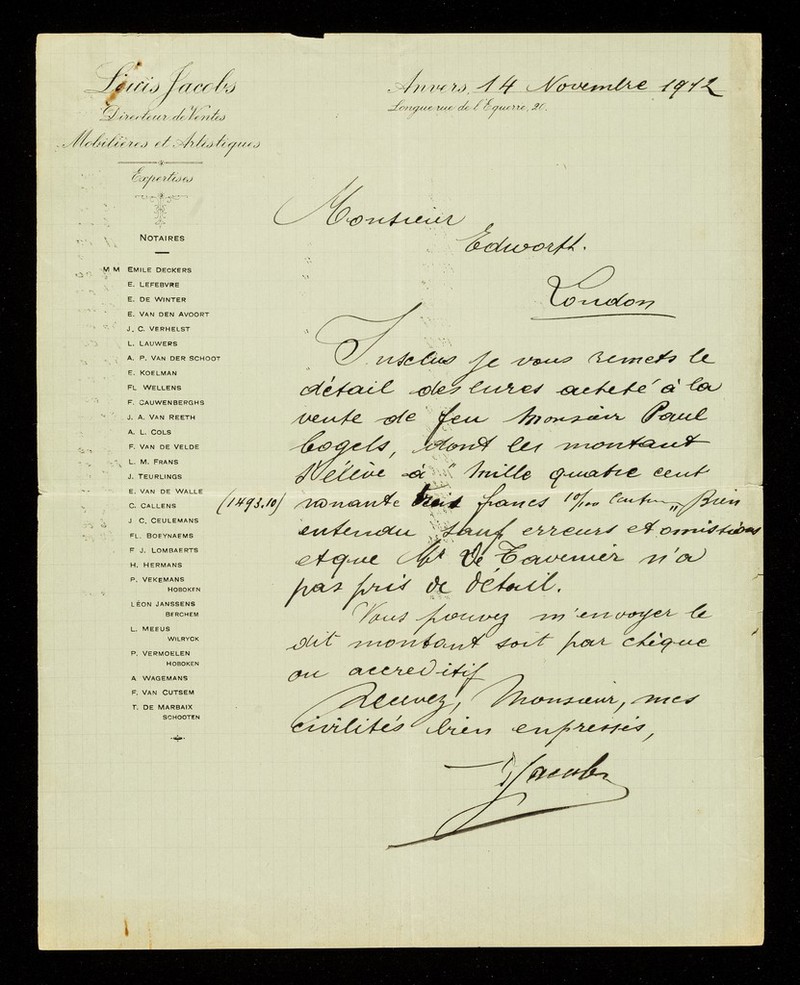 Louis Jacobs
Directeur de Ventes
Mobilières et Artistiques
Expertises
Anvers, 14 Novembre 1912
Longue rue de l'Equerre, 20.
NOTAIRES
MM EMILE DECKERS
E. LEFEBVRE
E. DE WINTER
E. VAN DEN AVOORT
J. C. VERHELST
L. LAUWERS
A. P. VAN DER SCHOOT
E. KOELMAN
FL WELLENS
F. CAUWENBERGHS
J. A. VAN REETH
A. L. COLS
F. VAN DE VELDE
L. M. FRANS
J. TEURLINGS
E. VAN DE WALLE
C. CALLENS
J C, CEULEMANS
FL. BOEYNAEMS
F J. LOMBAERTS
H. HERMANS
P. VEKEMANS
HOBOKEN
LÉON JANSSENS
BERCHEM
L. MEEUS
WILRYCK
P. VERMOELEN
HOBOKEN
A WAGEMANS
F. VAN CUTSEM
T. DE MARBAIX
SCHOOTEN
Monsieur
Edworth.
London
Insclus je vous remets le
détail des livres acheté à la
vente de feu Monsieur Paul
Cogels, dont les montant
s'élève à " Mille quatre cent
(1493.10) nonante trois francs 10/100 " Bien
entendu sauf erreurs et omissions
et que Mr De Tavernier n'a
pas pris de détail.
Vous pouvez m'envoyer le
dit montant soit par chèque
ou accreditif
Recevez, Monsieur, mes
civilités bien enpressés,
Jacobs